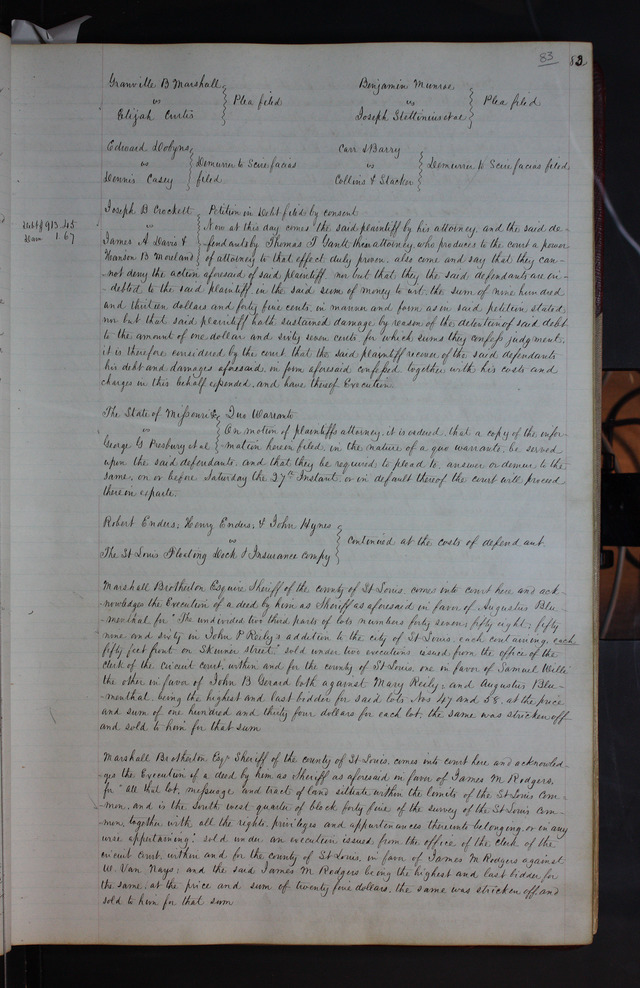 83 83
Granville B Marshall
vs
Elizah Curtis
Plea filed
Benjamin Munroe
vs
Joseph Stettinius et al
Plea filed
Edward Dobyns
vs
Dennis Casey
Demurrer to Scire facias
filed
Carr & Barry
vs
Collins &
Demurrer to Scire facias filed
Debt $913.45
Dam 1 67
Joseph B Crockett
vs
James A Davis &
Hanson B Moreland
Petition in Debt filed by consent
Now at this day comes the said plaintiff by his attorney, and the said de-
fendants by Thomas T Gantt their attorney, who produces to the court a power
of attorney to that effect duly proven, also come and say that they can-
not deny the action aforesaid of said plaintiff nor but that they the said defendants are in-
debted to the said plaintiff in the said sum of money to wit, the sum of nine hundred
and thirteen dollars and forty five cents, in manner and form as in said petition stated
nor but that said plaintiff hath sustained damage by reason of the detention of said debt
to the amount of one dollar and sixty seven cents, for which sums they confess judgment;
it is therefore considered by the court, that the said plaintiff recover of the said defendants
his debt and damages aforesaid, in form aforesaid confessed together with his costs and
charges in this behalf expended, and have thereof Execution.
The State of Missouri
vs
George G Presbury et al
Quo Warranto
On motion of plaintiffs attorney, it is ordered, that a copy of the infor-
mation herein filed, in the nature of a quo warranto, be served
upon the said defendants, and that they be required to plead to, answer or demur to the
same, on or before Saturday the 27th Instant, or in default thereof the court will proceed
therein exparte.
Robert Enders; Henry Enders; & John Hynes
vs
The St Louis Floating Dock & Insurance compy
continued at the costs of defendant
Marshall Brotherton Esquire Sheriff of the county of St Louis, comes into court here and ack-
nowledges the Execution of a deed by him as Sheriff as aforesaid in favor of Augustus Blu-
menthal for "The undivided two third parts of lots numbers forty seven, fifty eight, fifty
nine and sixty in John P Reily's addition to the city of St Louis, each containing, each
fifty feet front on Skinner street" sold under two executions issued from the office of the
clerk of the circuit court, within and for the county of St Louis, one in favor of Samuel Willi
the other in favor of John B Gerard both against Mary Reily; and Augustus Blu-
menthal, being the highest and last bidder for said lots Nos 47 and 58, at the price
and sum of one hundred and thirty four dollars for each lot, the same was stricken off
and sold to him for that sum
Marshall Brotherton Esqr Sheriff of the county of St Louis, comes into court here and acknowled-
ges the Execution of a deed by him as Sheriff as aforesaid in favor of James M Rodgers,
for "all that lot, messuage and tract of land situate within the limits of the St Louis Com-
mon, and is the south west quarter of block forty five of the survey of the St Louis Com-
mon, together with all the rights, privileges and appurtenances thereunto belonging, or in any
wise appertaining." sold under an execution issued from the office of the clerk of the
circuit court, within and for the county of St Louis, in favor of James M Rodgers against
W. Van Nays; and the said James M Rodgers being the highest and last bidder for
the same, at the price and sum of twenty five dollars, the same was stricken off and
sold to him for that sum